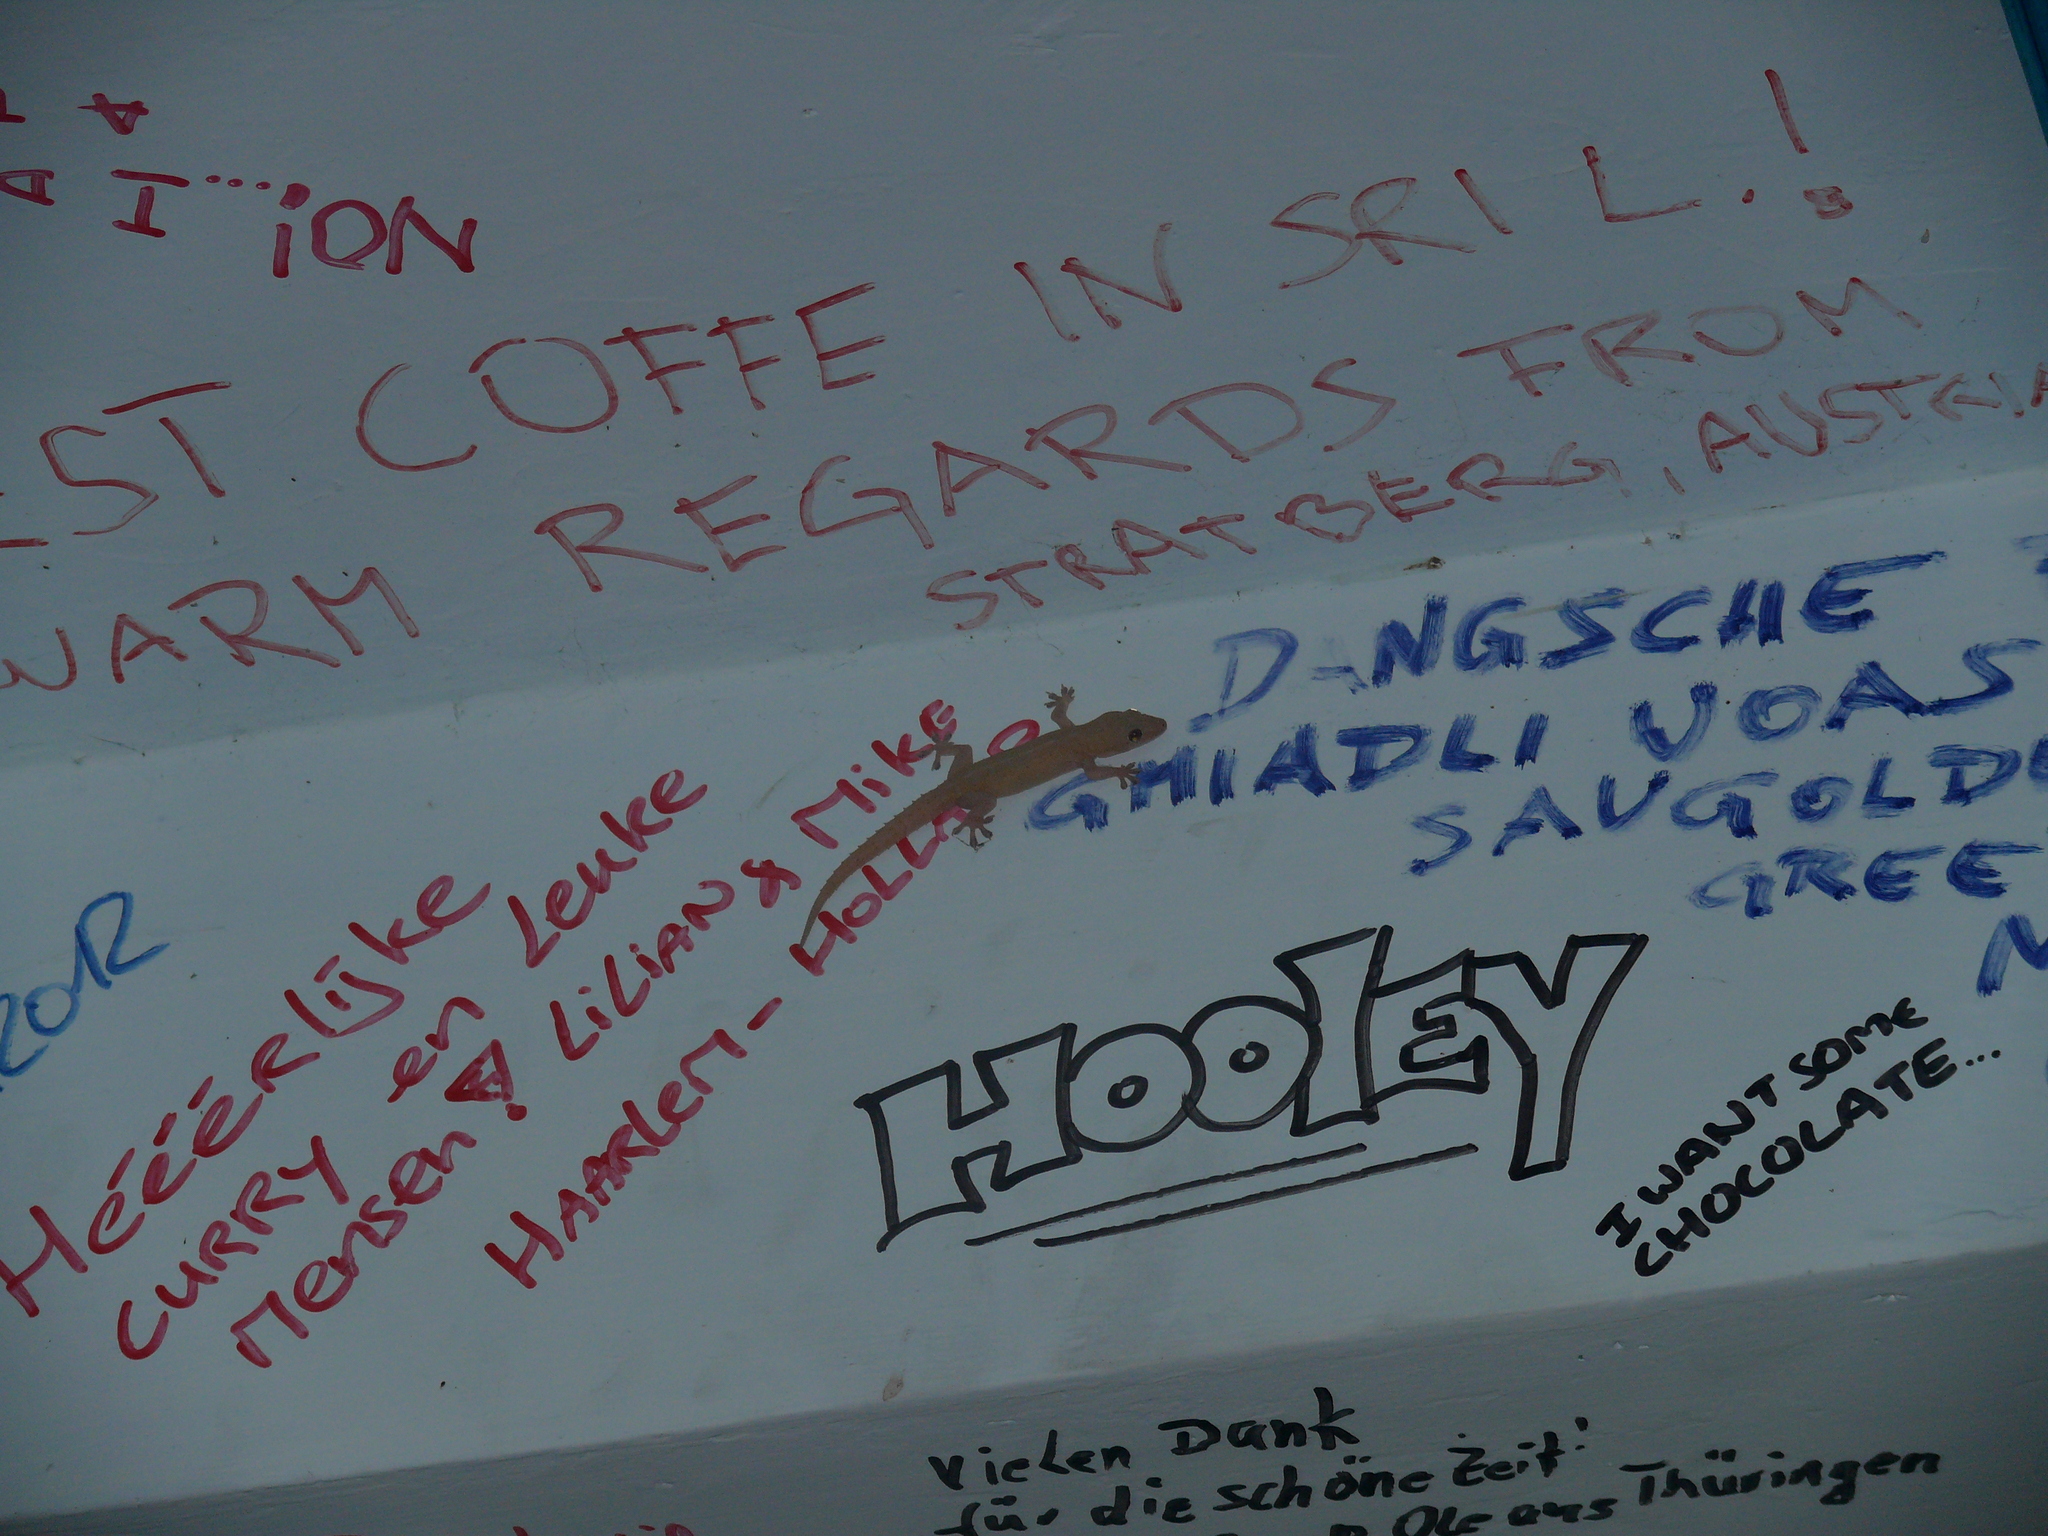 I....iON
EST COFFE IN SRI L.!
WARM REGARDS FROM
STRATBERG, AUSTRIA
DANGSCHE
GHIADLI VOAS
SAUGOLD
GREE
HéééRlijke
CURRY en Leuke
Mensen!
LiLiAN & Mike
HAARLEM - HOLLA D
2012
HOOLEY
I WANT SOME
CHOCOLATE...
Vielen Dank
für die schöne Zeit!
Ole aus Thüringen